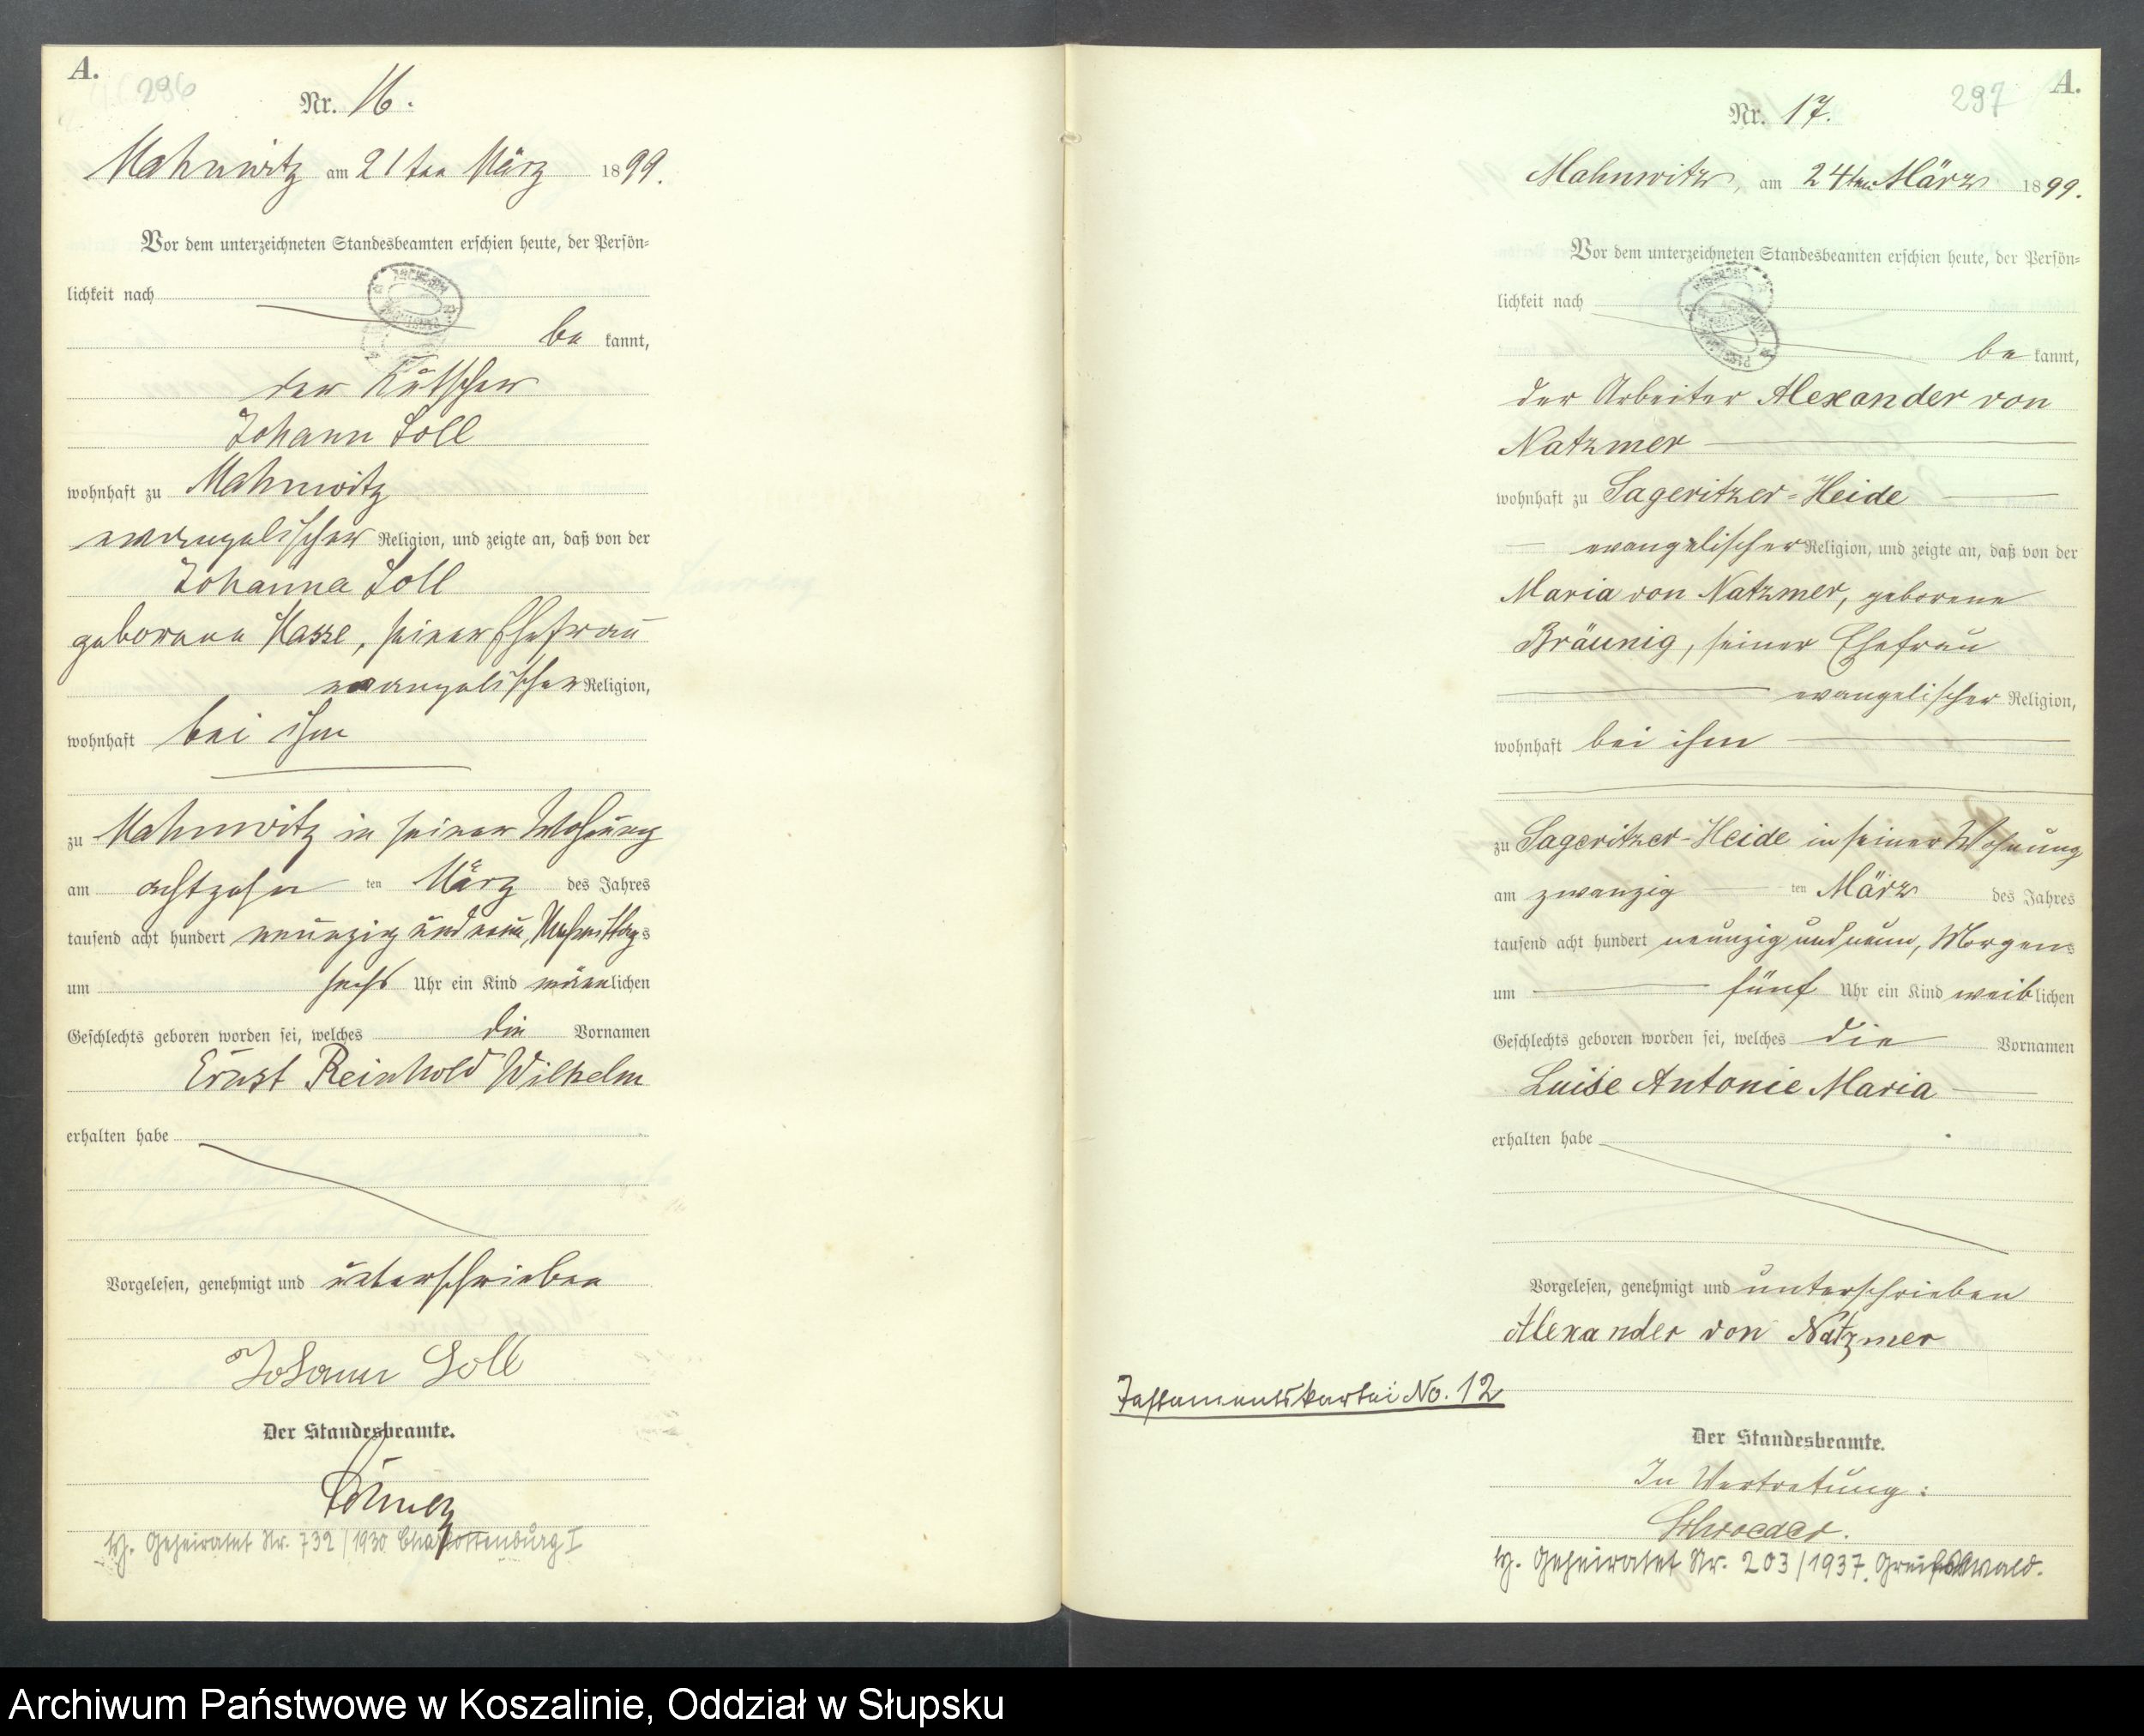 A.
296
Nr. 16.
Mahnwitz am 21ten März 1899.
Vor dem unterzeichneten Standesbeamten erschien heute, der Persön=
lichkeit nach
be kannt,
der Kutscher
Johann Soll
wohnhaft zu Mahnwitz
evangelischer Religion, und zeigte an, daß von der
Johanna Soll
geborene Hasse, seiner Ehefrau
evangelischer Religion,
wohnhaft bei ihm
zu Mahnwitz in seiner Wohnung
am achtzehn ten März des Jahres
tausend acht hundert neunzig und neun, Nachmittags
um sechs Uhr ein Kind männlichen
Geschlechts geboren worden sei, welches die Vornamen
Ernst Reinhold Wilhelm
erhalten habe
Vorgelesen, genehmigt und unterschrieben
Johann Soll
Der Standesbeamte.
Geheiratet Nr. 732/1930 Charlottenburg I
A.
297
Nr. 17.
Mahnwitz, am 24ten März 1899.
Vor dem unterzeichneten Standesbeamten erschien heute, der Persön=
lichkeit nach
be kannt,
der Arbeiter Alexander von
Natzmer
wohnhaft zu Sageritzer=Heide
evangelischer Religion, und zeigte an, daß von der
Maria von Natzmer, geborene
Bräunig, seiner Ehefrau
evangelischer Religion,
wohnhaft bei ihm
zu Sageritzer-Heide in seiner Wohnung
am zwanzig ten März des Jahres
tausend acht hundert neunzig und neun, Morgens
um fünf Uhr ein Kind weiblichen
Geschlechts geboren worden sei, welches die Vornamen
Luise Antonie Maria
erhalten habe
Vorgelesen, genehmigt und unterschrieben
Alexander von Natzmer
Testamentskartei No. 12
Der Standesbeamte.
In Vertretung:
Schroeder.
Geheiratet Nr. 203/1937. Greifswald.
Archiwum Państwowe w Koszalinie, Oddział w Słupsku